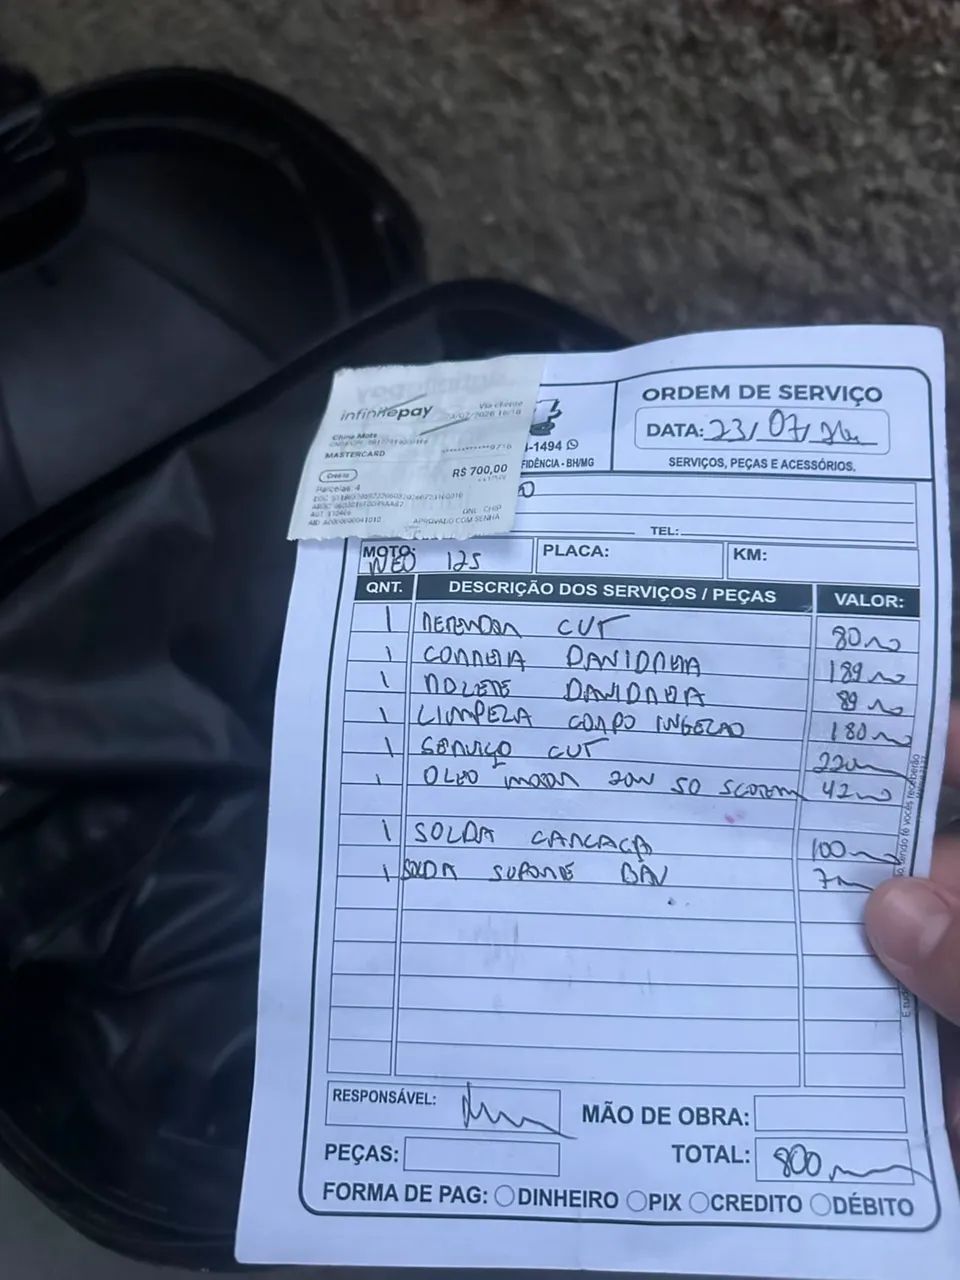 infinitepay
Via cliente
/07/2026 16:18
China Mots
MASTERCARD
************9716
Crédito
R$ 700,00
Parcelas: 4
ONL CHIP
APROVADO COM SENHA
AID A0000000041010
-1494
FIDÊNCIA - BH/MG
ORDEM DE SERVIÇO
DATA: 23/07/26
SERVIÇOS, PEÇAS E ACESSÓRIOS.
TEL:
MOTO: NEO 125
PLACA:
KM:
QNT. DESCRIÇÃO DOS SERVIÇOS / PEÇAS VALOR:
1 CVT 80,00
1 CORREIA DAVIDREIA 189,00
1 ROLETE DAVIDREIA 89,00
1 LIMPEZA CORPO INGEÇAO 180,00
1 SERVIÇO CVT 220,00
1 OLEO MOTOR 20W 50 42,00
1 SOLDA CARCAÇA 100,00
1 SOLDA SUPORTE BAU
RESPONSÁVEL:
MÃO DE OBRA:
PEÇAS:
TOTAL: 800,00
FORMA DE PAG: DINHEIRO PIX CREDITO DÉBITO